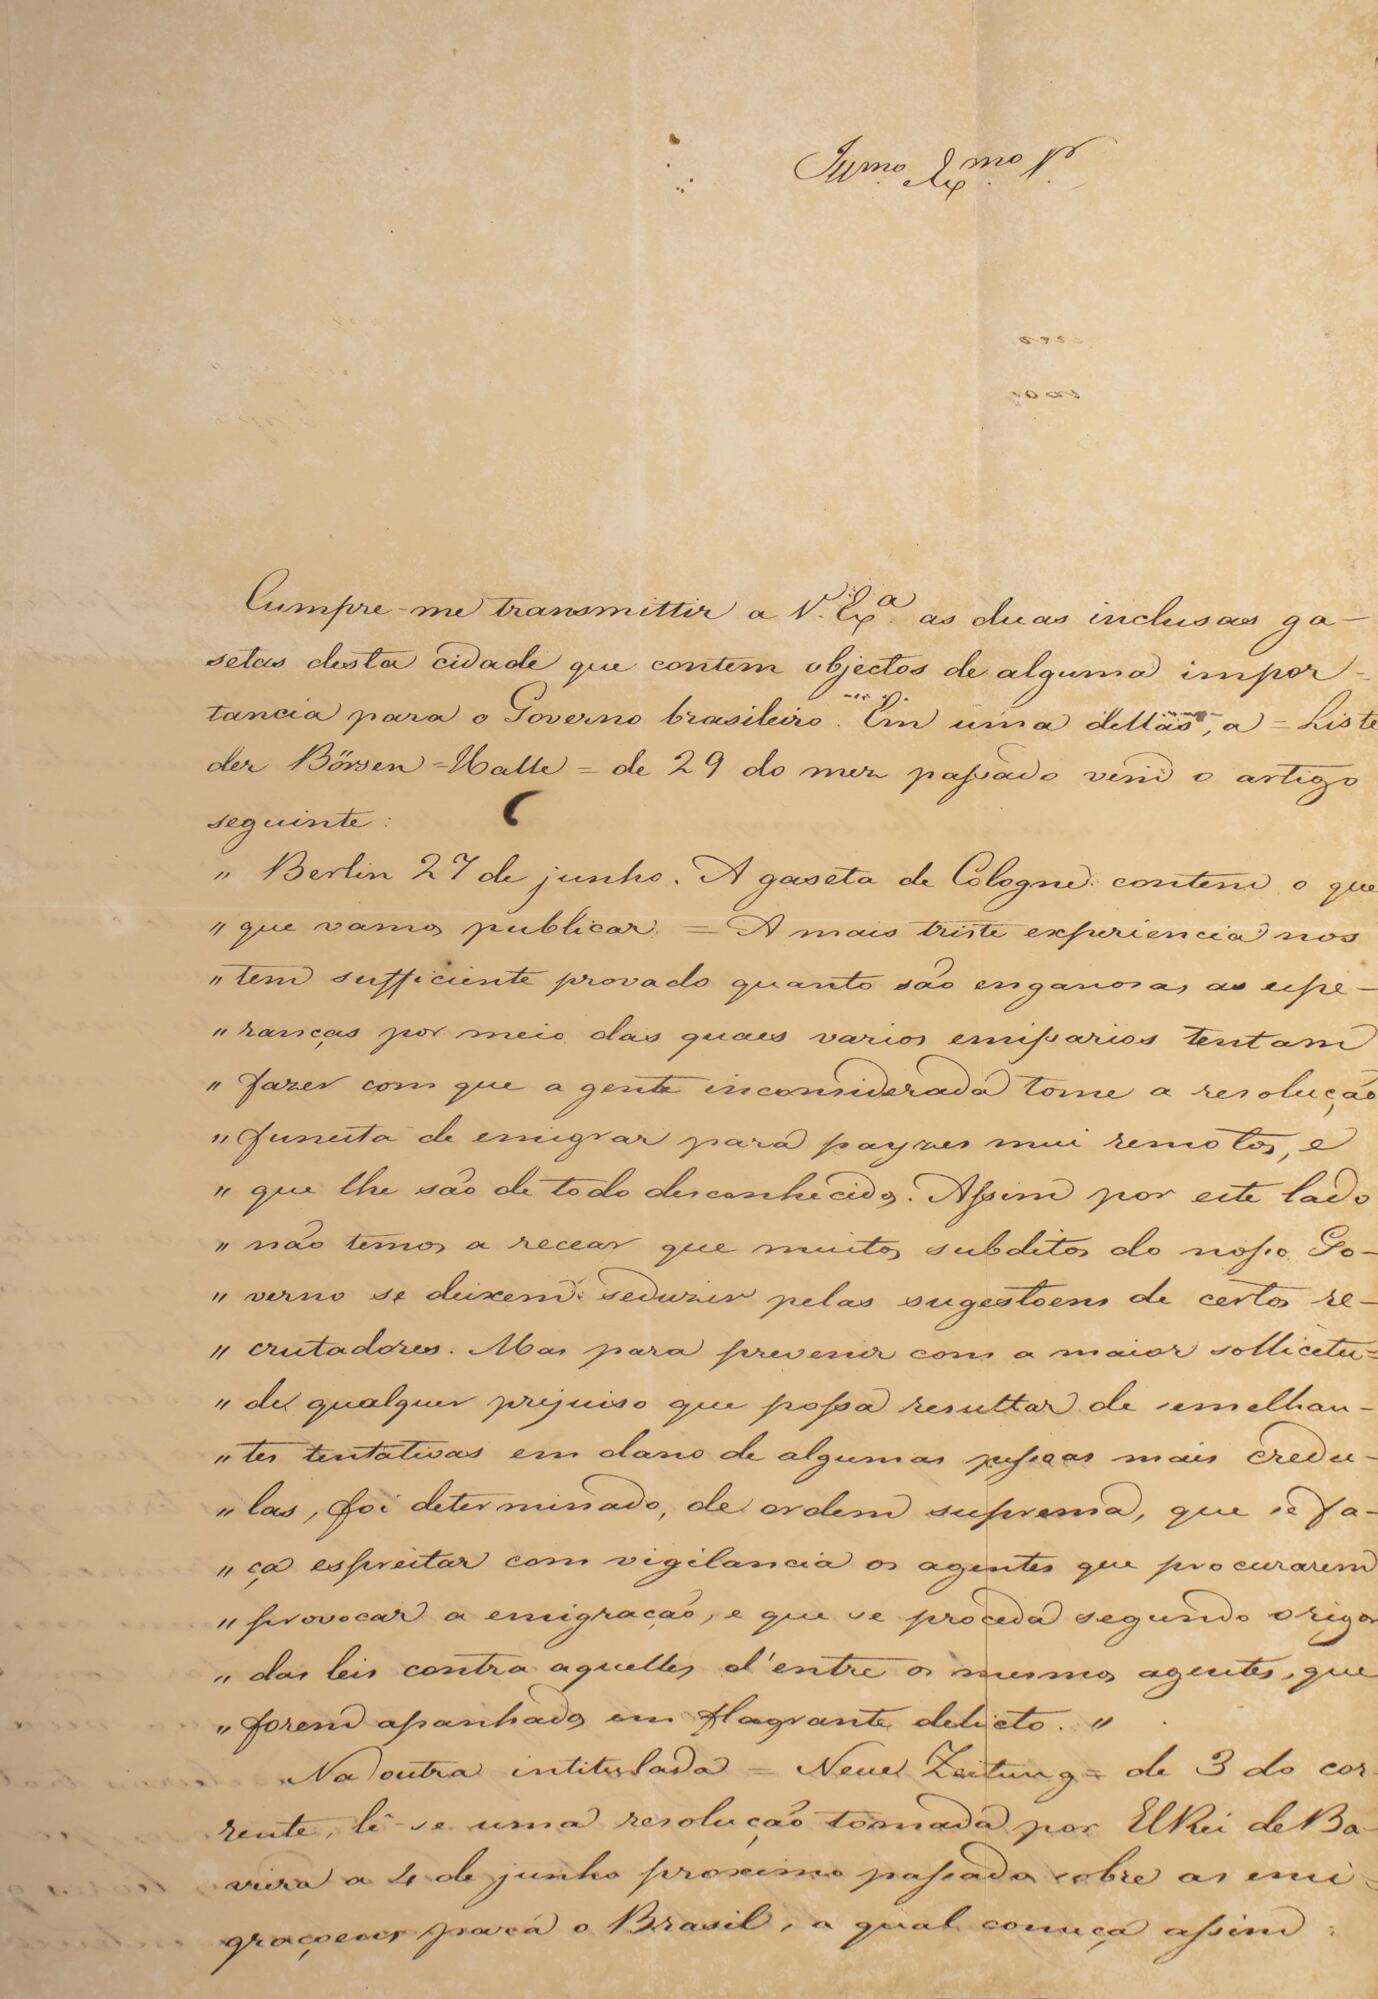 Illmo. Exmo. Sr.
Cumpre-me transmittir a V. Exa. as duas inclusas ga-
setas desta cidade que contem objectos de alguma impor-
tancia para o Governo brasileiro. Em uma dellas, a = Liste
der Börsen=Halle = de 29 do mez passado vem o artigo
seguinte:
" Berlin 27 de junho. A gaseta de Cologne contem o que
" que vamos publicar. = A mais triste experiencia nos
" tem sufficiente provado quanto são enganosas as espe-
" ranças por meio das quaes varios emissarios tentam
" fazer com que a gente inconsiderada tome a resolução
" funesta de emigrar para payzes mui remotos, e
" que lhe são de todo desconhecidos. Assim por este lado
" não temos a recear que muitos subditos do nosso Go-
" verno se deixem seduzir pelas sugestoens de certos re-
" crutadores. Mas para prevenir com a maior sollicitu=
" de qualquer prejuiso que possa resultar de semelhan-
" tes tentativas em dano de algumas pessoas mais credu-
" las, foi determinado, de ordem suprema, que se fa-
" ça espreitar com vigilancia os agentes que procurarem
" provocar a emigração, e que se proceda segundo o rigor
" das leis contra aquelles d'entre os mesmos agentes, que
" forem apanhados em flagrante delicto. "
Na outra intitulada = Neue Zeitung = de 3 do cor-
rente, lê-se uma resolução tomada por ElRei de Ba-
viera a 4 de junho proximo passado sobre as emi=
graçoens para o Brasil, a qual começa assim: